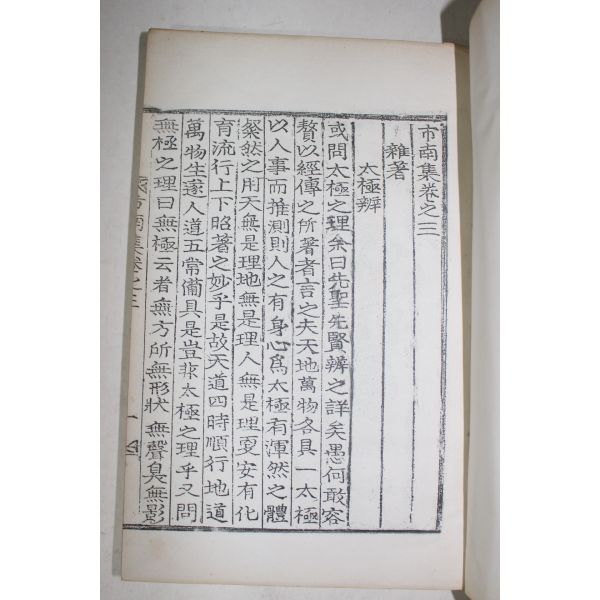 市南集卷之三
雜著
太極辨
或問太極之理余曰先聖先賢辨之詳矣愚何敢容
贅以經傳之所著者言之夫天地萬物各具一太極
以人事而推測則人之有身心爲太極有渾然之體
粲然之用天無是理地無是理人無是理寔安有化
育流行上下昭著之妙乎是故天道四時順行地道
萬物生遂人道五常備具是豈非太極之理乎又問
無極之理曰無極云者無方所無形狀無聲臭無影
市南集卷之三
一